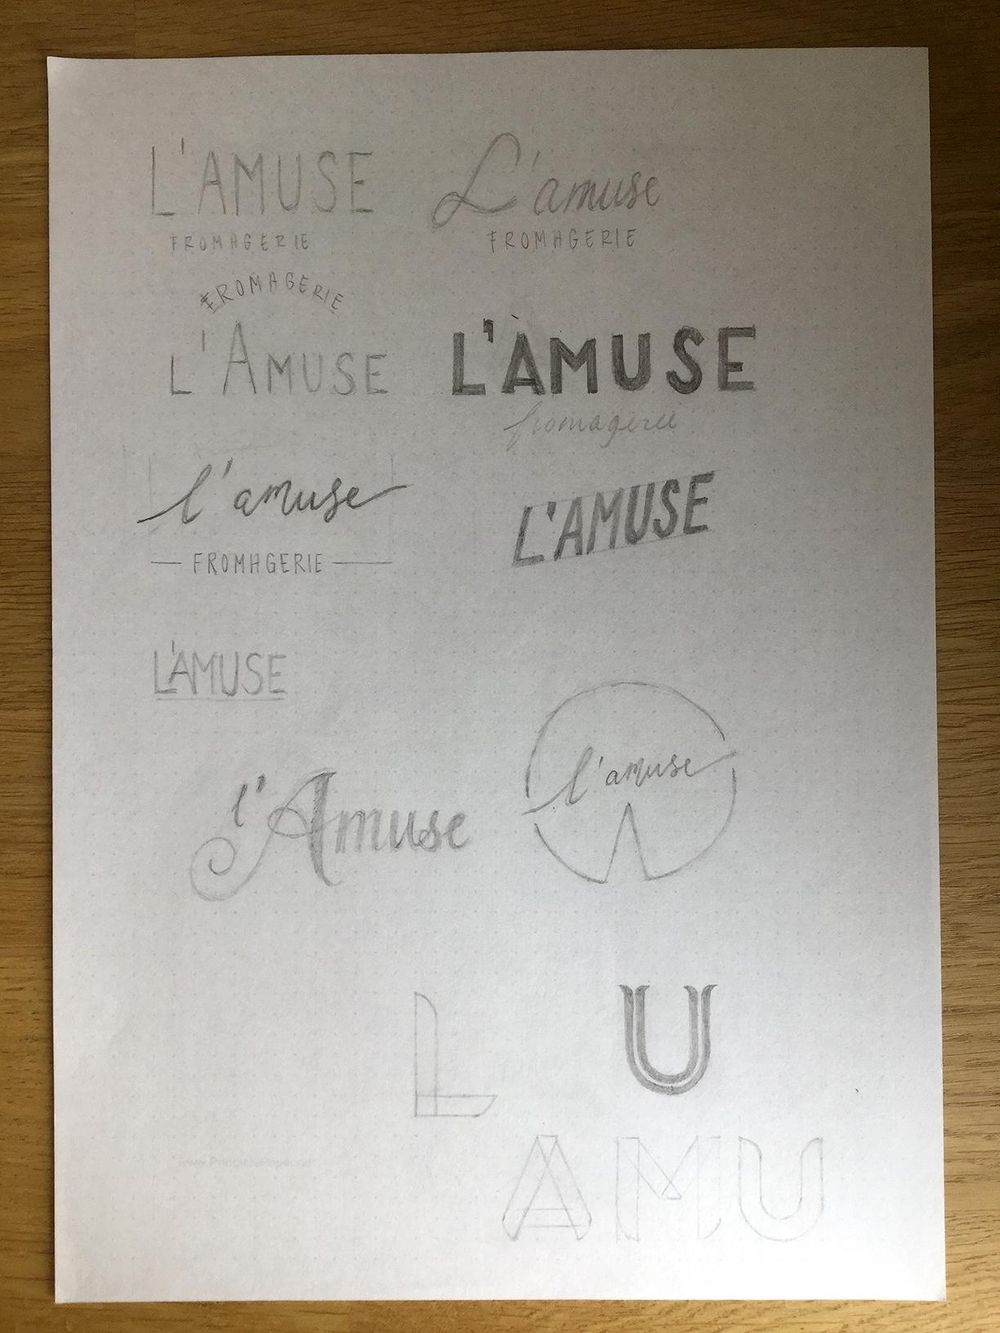 L'AMUSE
FROMAGERIE
L'amuse
FROMAGERIE
FROMAGERIE
L'AMUSE
L'AMUSE
fromagerie
l'amuse
FROMAGERIE
L'AMUSE
L'AMUSE
l'Amuse
l'amuse
L
U
AMU